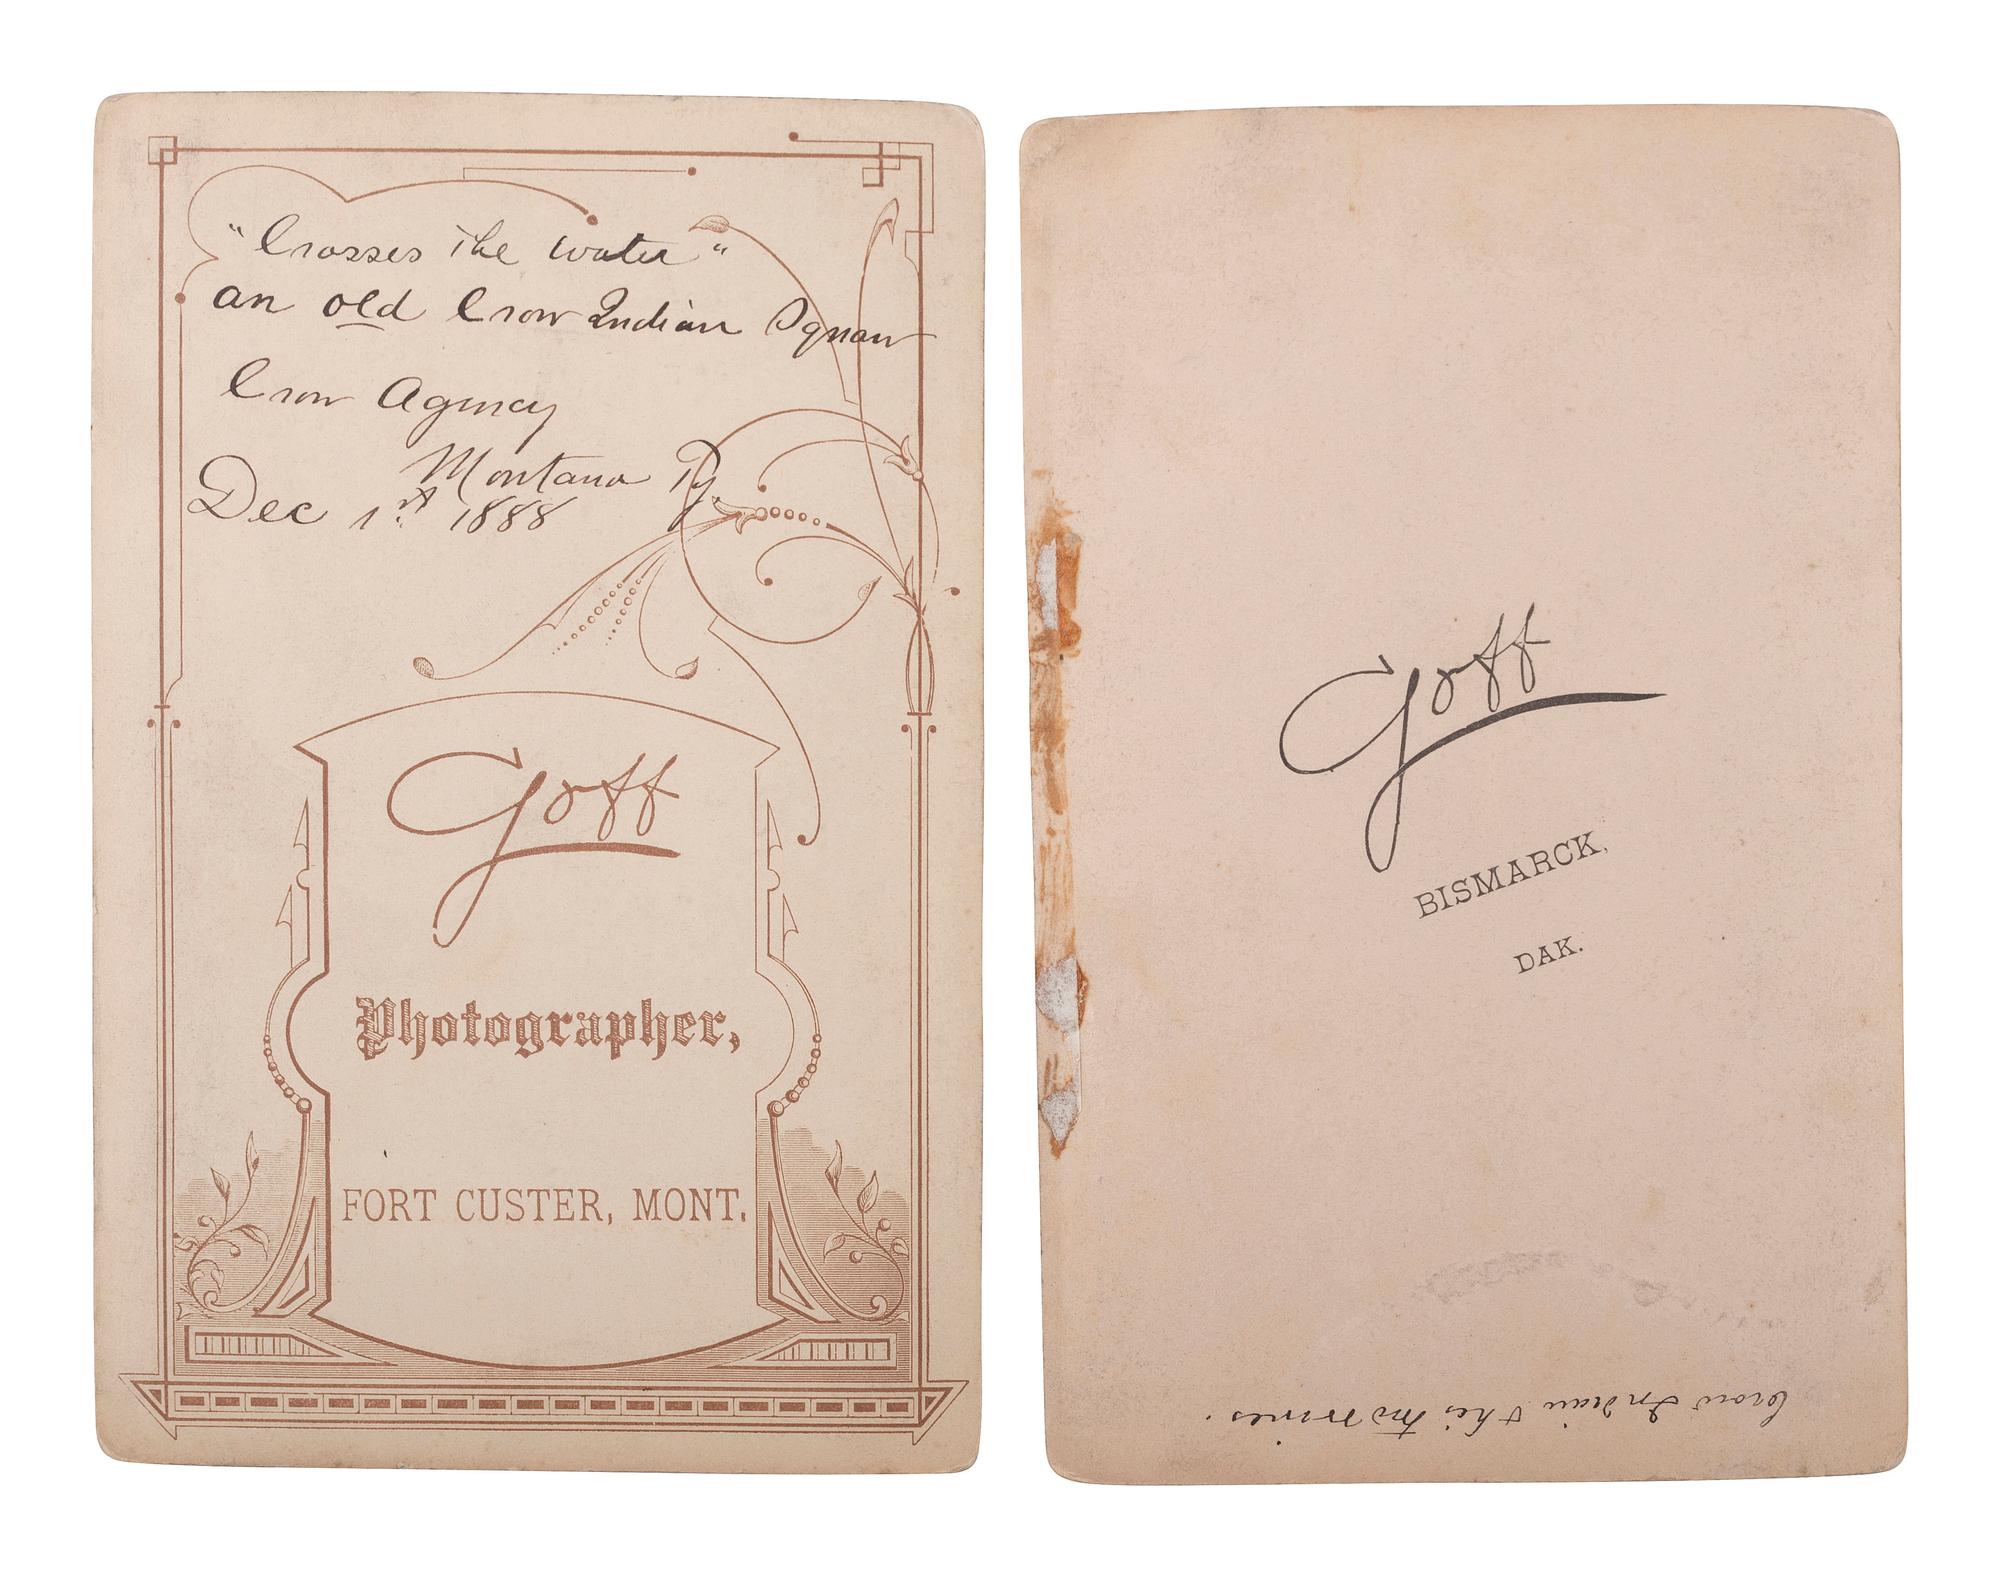 "Crosses the water"
an old Crow Indian Squaw
Crow Agency
Montana Ty.
Dec 1st 1888
Goff
Photographer,
FORT CUSTER, MONT.
Goff
BISMARCK,
DAK.
Crow Indian & his two wives.